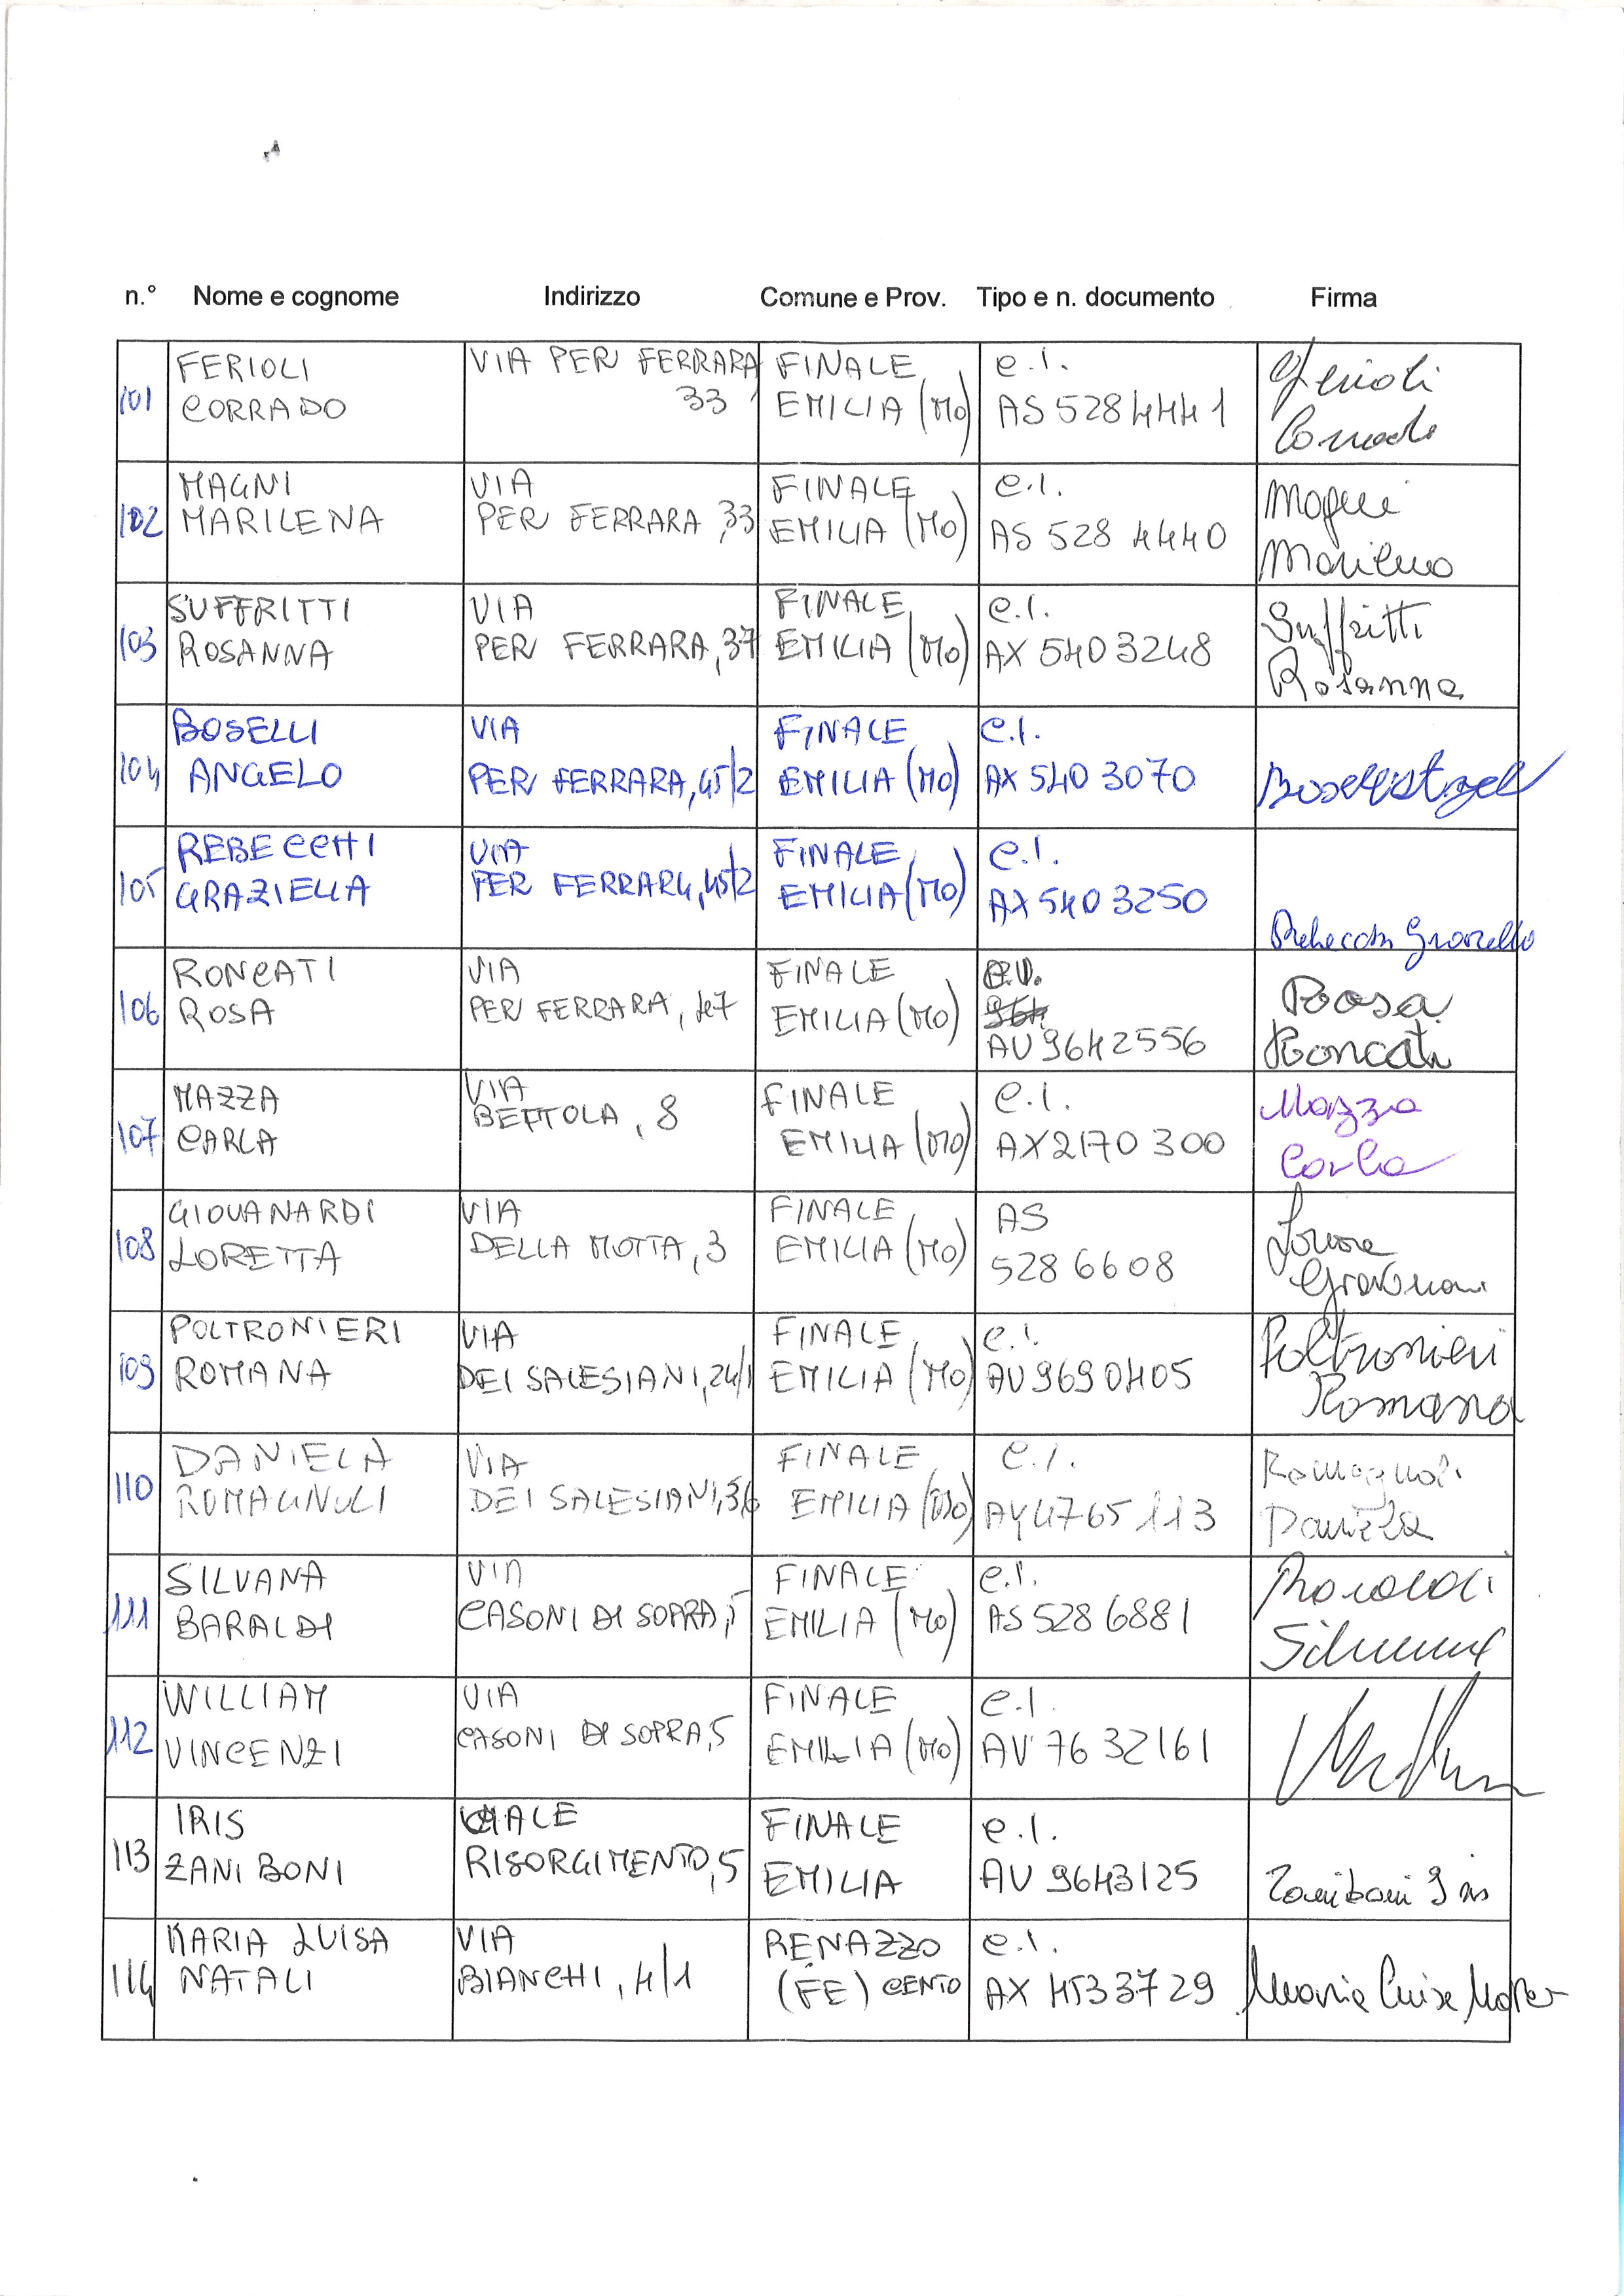 n.° Nome e cognome Indirizzo Comune e Prov. Tipo e n. documento Firma
101 FERIOLI CORRADO VIA PER FERRARA, 33 FINALE EMILIA (MO) C.I. AS 5284441 Ferioli Corrado
102 MAGNI MARILENA VIA PER FERRARA, 33 FINALE EMILIA (MO) C.I. AS 528 4440 Magni Marilena
103 SUFFRITTI ROSANNA VIA PER FERRARA, 37 FINALE EMILIA (MO) C.I. AX 5403248 Suffritti Rosanna
104 BOSELLI ANGELO VIA PER FERRARA, 45/2 FINALE EMILIA (MO) C.I. AX 540 3070
105 REBECCHI GRAZIELLA VIA PER FERRARA, 45/2 FINALE EMILIA (MO) C.I. AX 5403250 Rebecchi Graziella
106 RONCATI ROSA VIA PER FERRARA, FINALE EMILIA (MO) AV 9642556 Rosa Roncati
107 MAZZA CARLA VIA BERTOLA, 8 FINALE EMILIA (MO) C.I. AX 2170 300 Mazza Carla
108 GIOVANARDI LORETTA VIA DELLA MOTTA, 3 FINALE EMILIA (MO) AS 528 6608
109 POLTRONIERI ROMANA VIA DEI SALESIANI, 24/1 FINALE EMILIA (MO) C.I. AV 9690405 Poltronieri Romana
110 DANIELA ROMAGNOLI VIA DEI SALESIANI, 36 FINALE EMILIA (MO) C.I. AY 4765113 Romagnoli Daniela
111 SILVANA BARALDI VIA CASONI DI SOPRA, 5 FINALE EMILIA (MO) C.I. AS 528 6881 Baraldi Silvana
112 WILLIAM VINCENZI VIA CASONI DI SOPRA, 5 FINALE EMILIA (MO) C.I. AV 76 32161
113 IRIS ZANIBONI VIALE RISORGIMENTO, 5 FINALE EMILIA C.I. AV 9643125 Zaniboni Iris
114 MARIA LUISA NATALI VIA BIANCHI, 4/1 RENAZZO (FE) CENTO C.I. AX 4533729 Maria Luisa